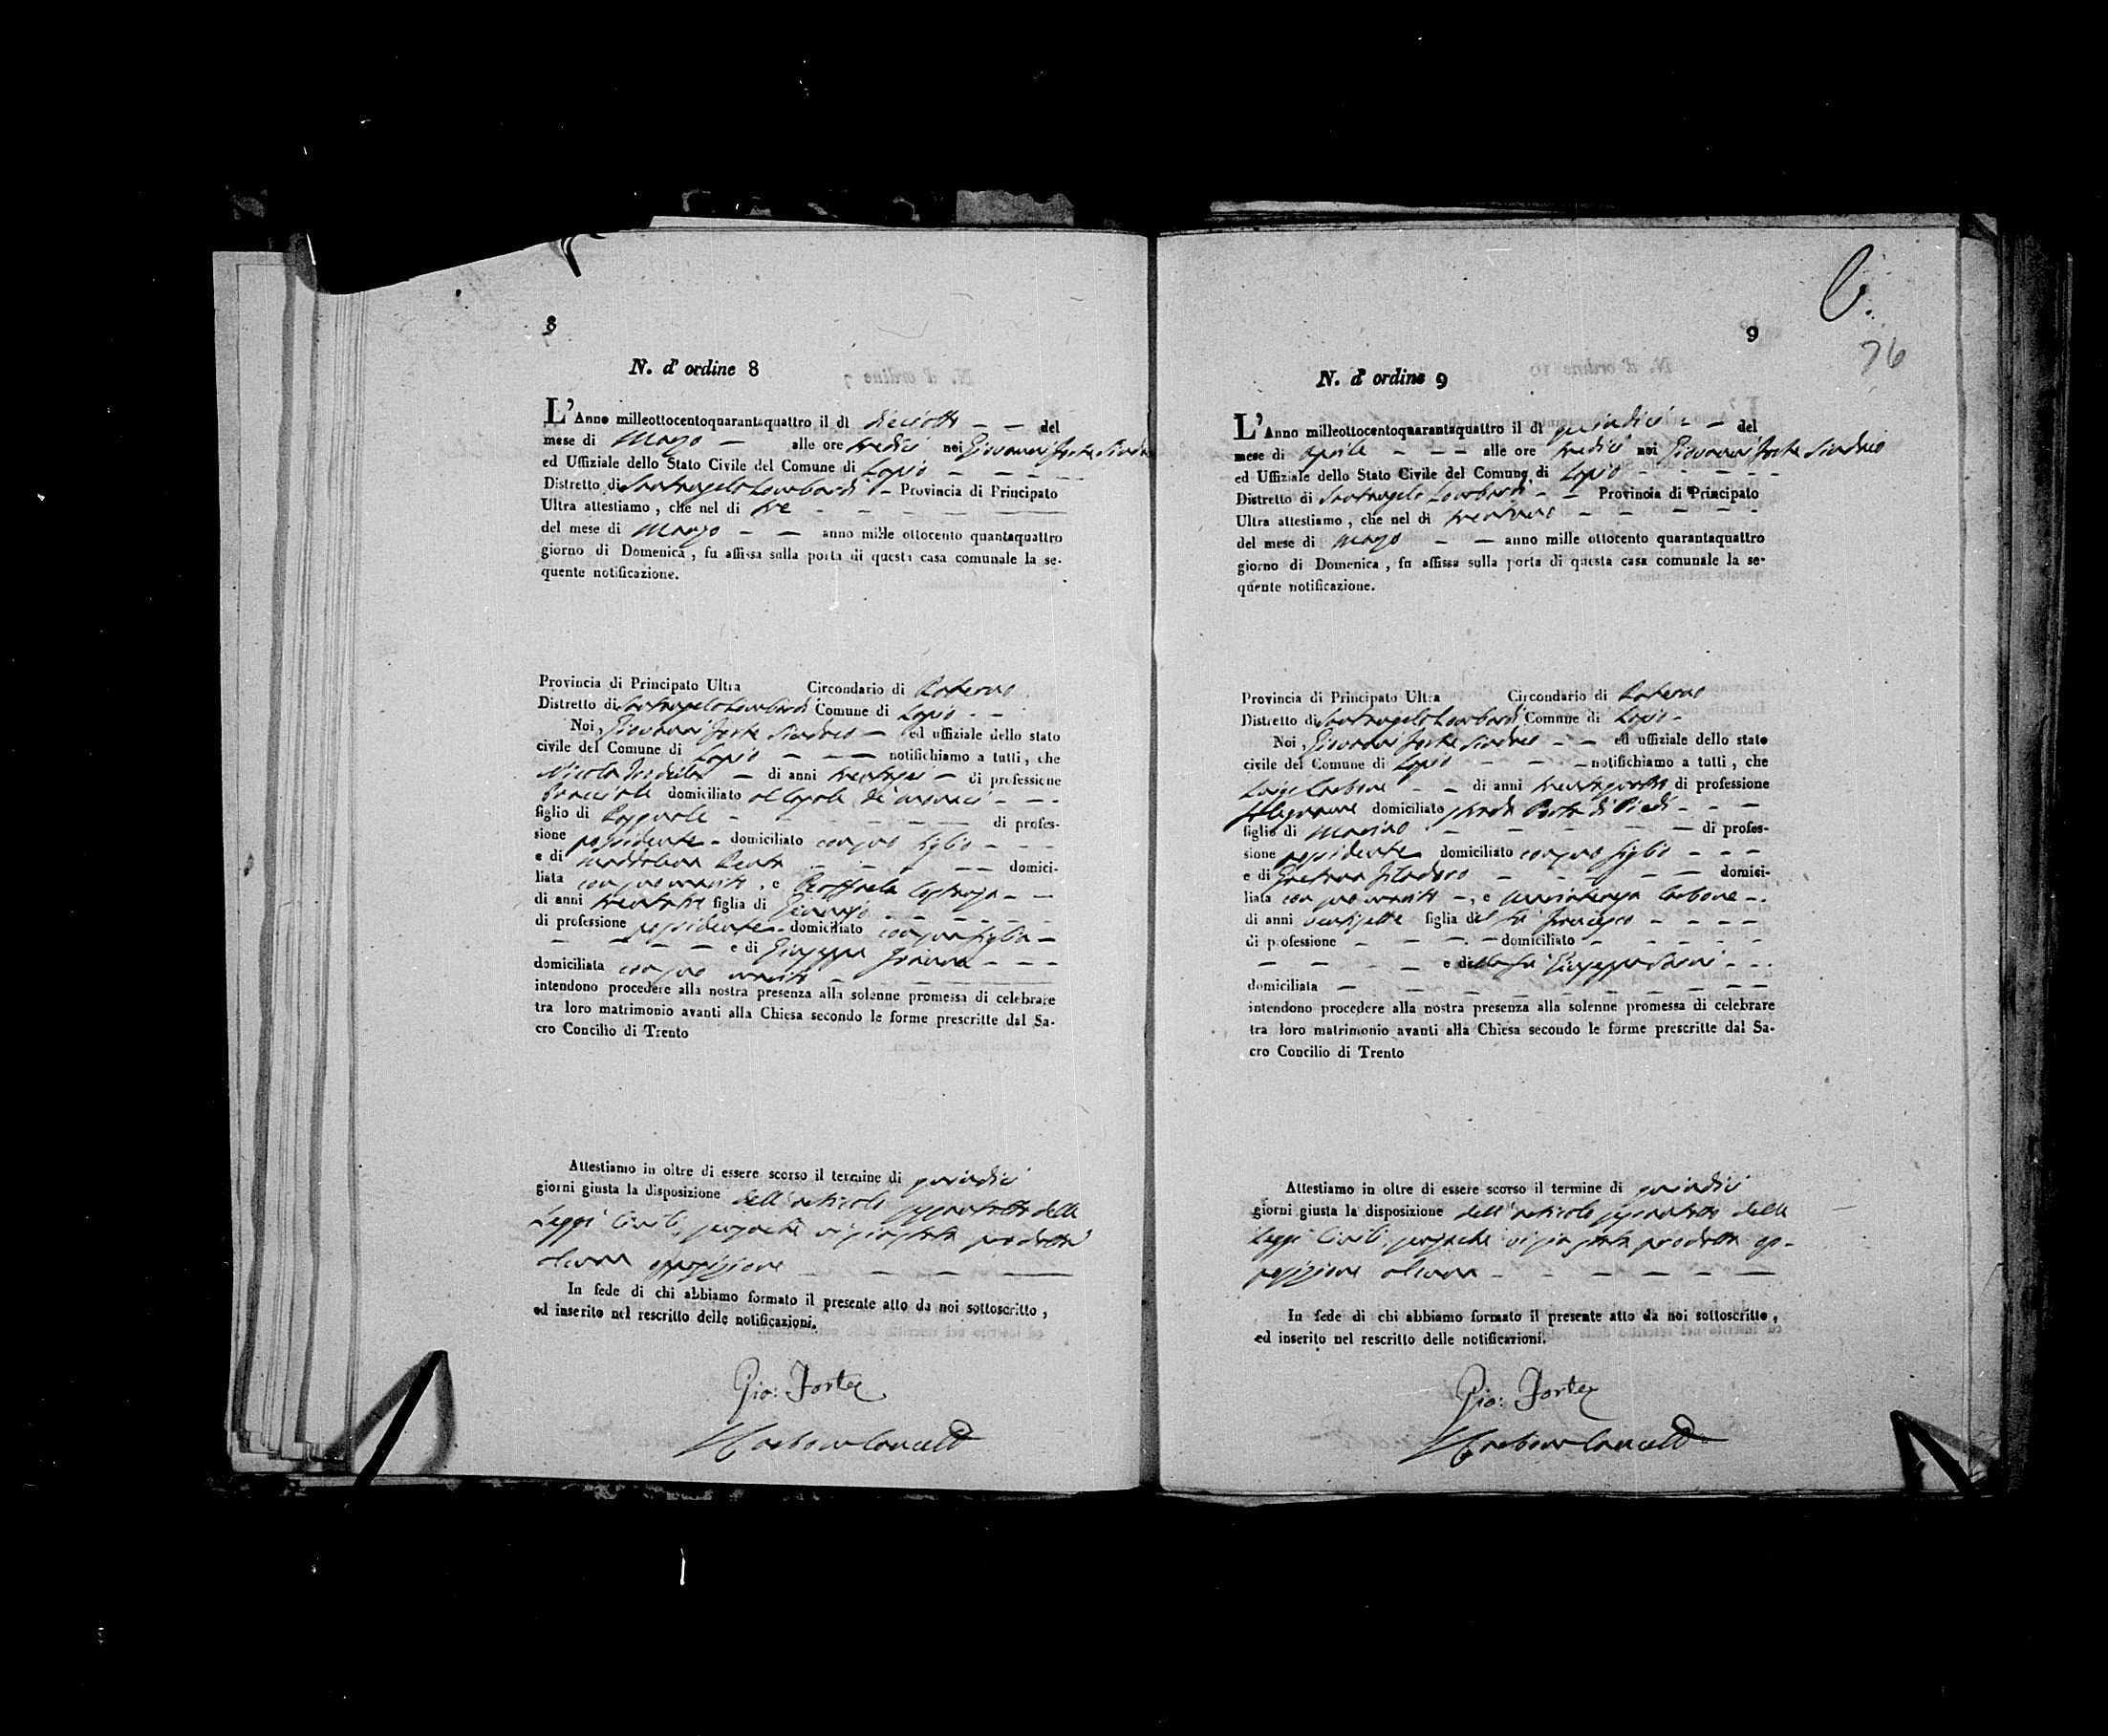 8
N. d' ordine 8
L'Anno milleottocentoquarantaquattro il dì dieciotto — — del
mese di Marzo — alle ore tredici noi Giovanni Forte Sindaco
ed Uffiziale dello Stato Civile del Comune di Lapio — — — —
Distretto di Santangelo Lombardi — Provincia di Principato
Ultra attestiamo, che nel di tre — — — — —
del mese di Marzo — — anno mille ottocento quantaquattro
giorno di Domenica, fu affissa sulla porta di questa casa comunale la se-
quente notificazione.
Provincia di Principato Ultra Circondario di Paterno
Distretto di Santangelo Lombardi Comune di Lapio — —
Noi, Giovanni Forte Sindaco — ed uffiziale dello stato
civile del Comune di Lapio — — — notifichiamo a tutti, che
Nicola — di anni trentasei — di professione
domiciliato — — —
figlio di — — — — — — di profes-
sione possidente — domiciliato con suo figlio — — —
e di Maddalena — — — — — domici-
liata con suo marito, e Raffaela — —
di anni trentatre figlia di — — — — —
di professione possidente — domiciliato con sua figlia —
— — — — e di Giuseppa — — —
domiciliata con suo marito — — — —
intendono procedere alla nostra presenza alla solenne promessa di celebrare
tra loro matrimonio avanti alla Chiesa secondo le forme prescritte dal Sa-
cro Concilio di Trento
Attestiamo in oltre di essere scorso il termine di quindici
giorni giusta la disposizione dell'articolo sessantotto delle
Leggi Civili, senzache vi sia stata prodotta
alcuna opposizione — — — —
In fede di chi abbiamo formato il presente atto da noi sottoscritto,
ed inserito nel rescritto delle notificazioni.
Gio: Forte
9
76
N. d' ordine 9
L'Anno milleottocentoquarantaquattro il dì quindici — — del
mese di Aprile — — — alle ore tredici noi Giovanni Forte Sindaco
ed Uffiziale dello Stato Civile del Comune di Lapio — — — —
Distretto di Santangelo Lombardi — — Provincia di Principato
Ultra attestiamo, che nel di trentuno — — — — —
del mese di Marzo — — anno mille ottocento quarantaquattro
giorno di Domenica, fu affissa sulla porta di questa casa comunale la se-
quente notificazione.
Provincia di Principato Ultra Circondario di Paterno
Distretto di Santangelo Lombardi Comune di Lapio —
Noi, Giovanni Forte Sindaco — — ed uffiziale dello stato
civile del Comune di Lapio — — — notifichiamo a tutti, che
Luigi Carbone — — di anni trentaquattro di professione
falegname domiciliato strada Porta di Piedi — — —
figlio di Marino — — — — — — di profes-
sione possidente domiciliato con suo figlio — — —
e di Gaetana — — — — — domici-
liata con suo marito —, e Mariateresa Carbone —
di anni ventisette figlia del fu Francesco — — — —
di professione — — — — domiciliato — — — — —
— — — — e della fu Giuseppa — — —
domiciliata — — — — — — — — — —
intendono procedere alla nostra presenza alla solenne promessa di celebrare
tra loro matrimonio avanti alla Chiesa secondo le forme prescritte dal Sa-
cro Concilio di Trento
Attestiamo in oltre di essere scorso il termine di quindici
giorni giusta la disposizione dell'articolo sessantotto delle
Leggi Civili, senzache vi sia stata prodotta op-
posizione alcuna — — — — — —
In fede di chi abbiamo formato il presente atto da noi sottoscritto,
ed inserito nel rescritto delle notificazioni.
Gio: Forte